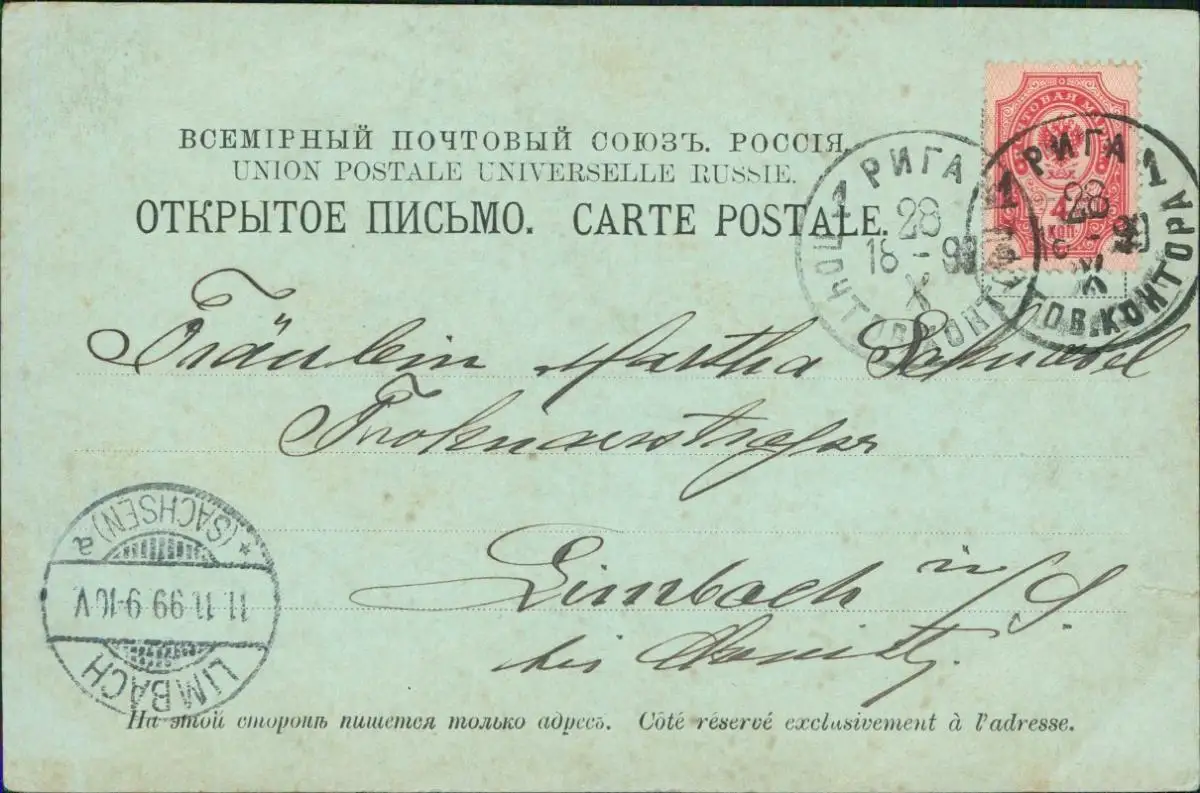 ВСЕМІРНЫЙ ПОЧТОВЫЙ СОЮЗЪ. РОССІЯ.
UNION POSTALE UNIVERSELLE RUSSIE.
ОТКРЫТОЕ ПИСЬМО. CARTE POSTALE.
РИГА 1
28
КОП.
РИГА
28
X
1
ПОЧТОВ. КОНТОРА
Fräulein Martha Schnabel
Limbach i/S.
bei
LIMBACH
11.11.99 9-10.V.
* (SACHSEN) a
На этой сторонѣ пишется только адресъ. Côté réservé exclusivement à l'adresse.